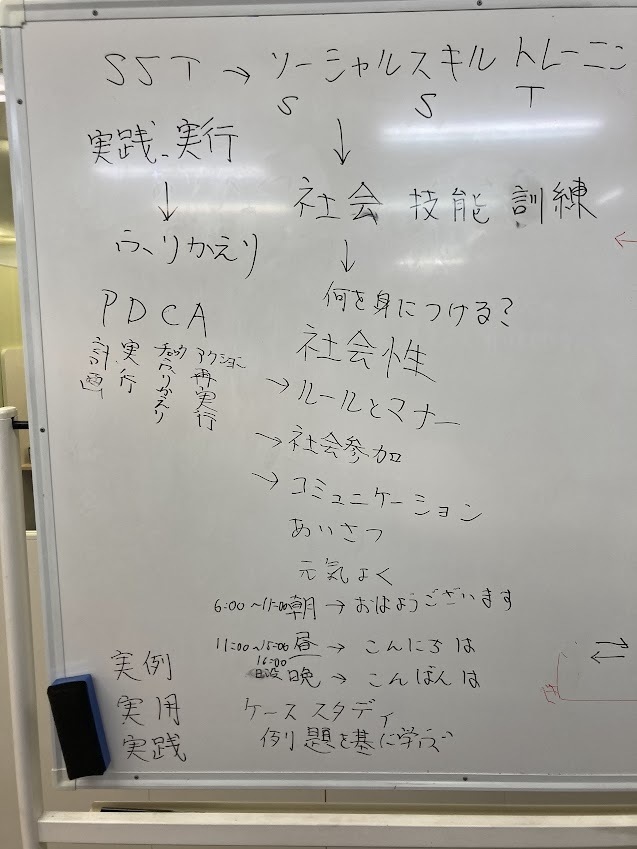 SST → ソーシャルスキルトレーニン
S S T
↓
実践、実行
↓
ふりかえり
社会 技能 訓練
↓
何を身につける?
社会性
→ ルールとマナー
→ 社会参加
→ コミュニケーション
あいさつ
元気よく
6:00~11:00 朝 → おはようございます
11:00~15:00 昼 → こんにちは
16:00
日没 晩 → こんばんは
PDCA
計画
実行
チェック
ふりかえり
アクション
再実行
実例
実用
実践
ケーススタディ
例題を基に学ぶ